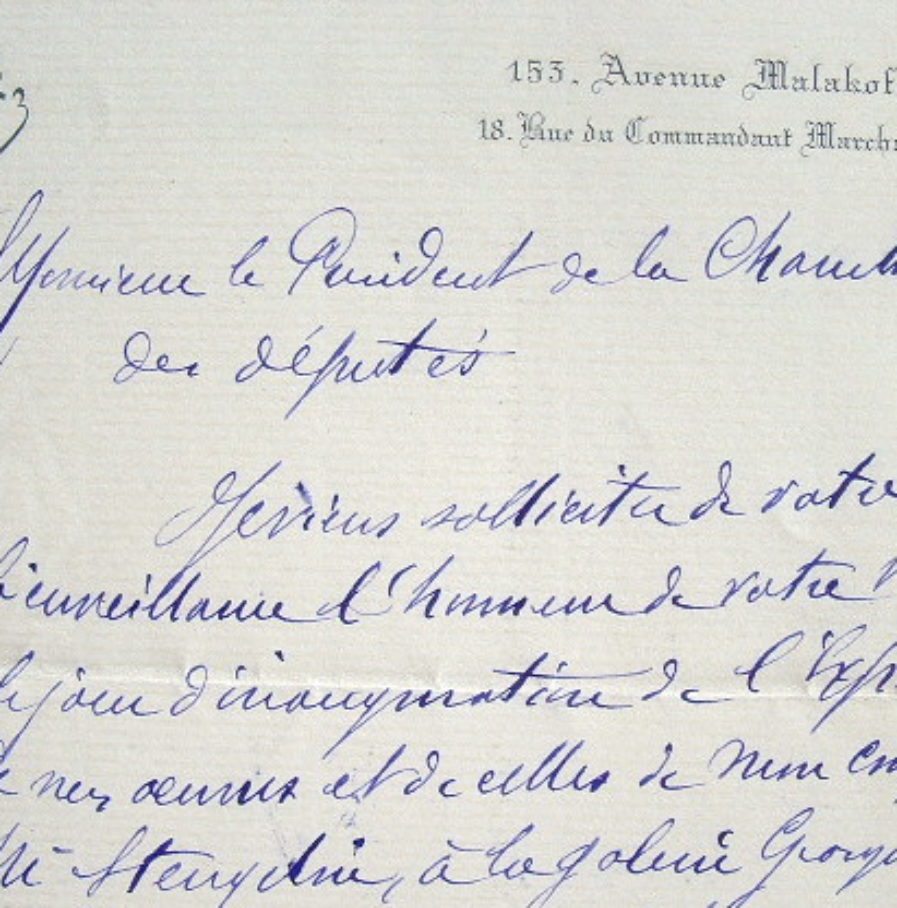 153. Avenue Malakof
18. Rue du Commandant March
Monsieur le Président de la Cham
des députés
Je viens solliciter de votre
bienveillance l'honneur de votre
le jour d'inauguration de l'Exp
de mes œuvres et de celles de mon
à la galerie Georg